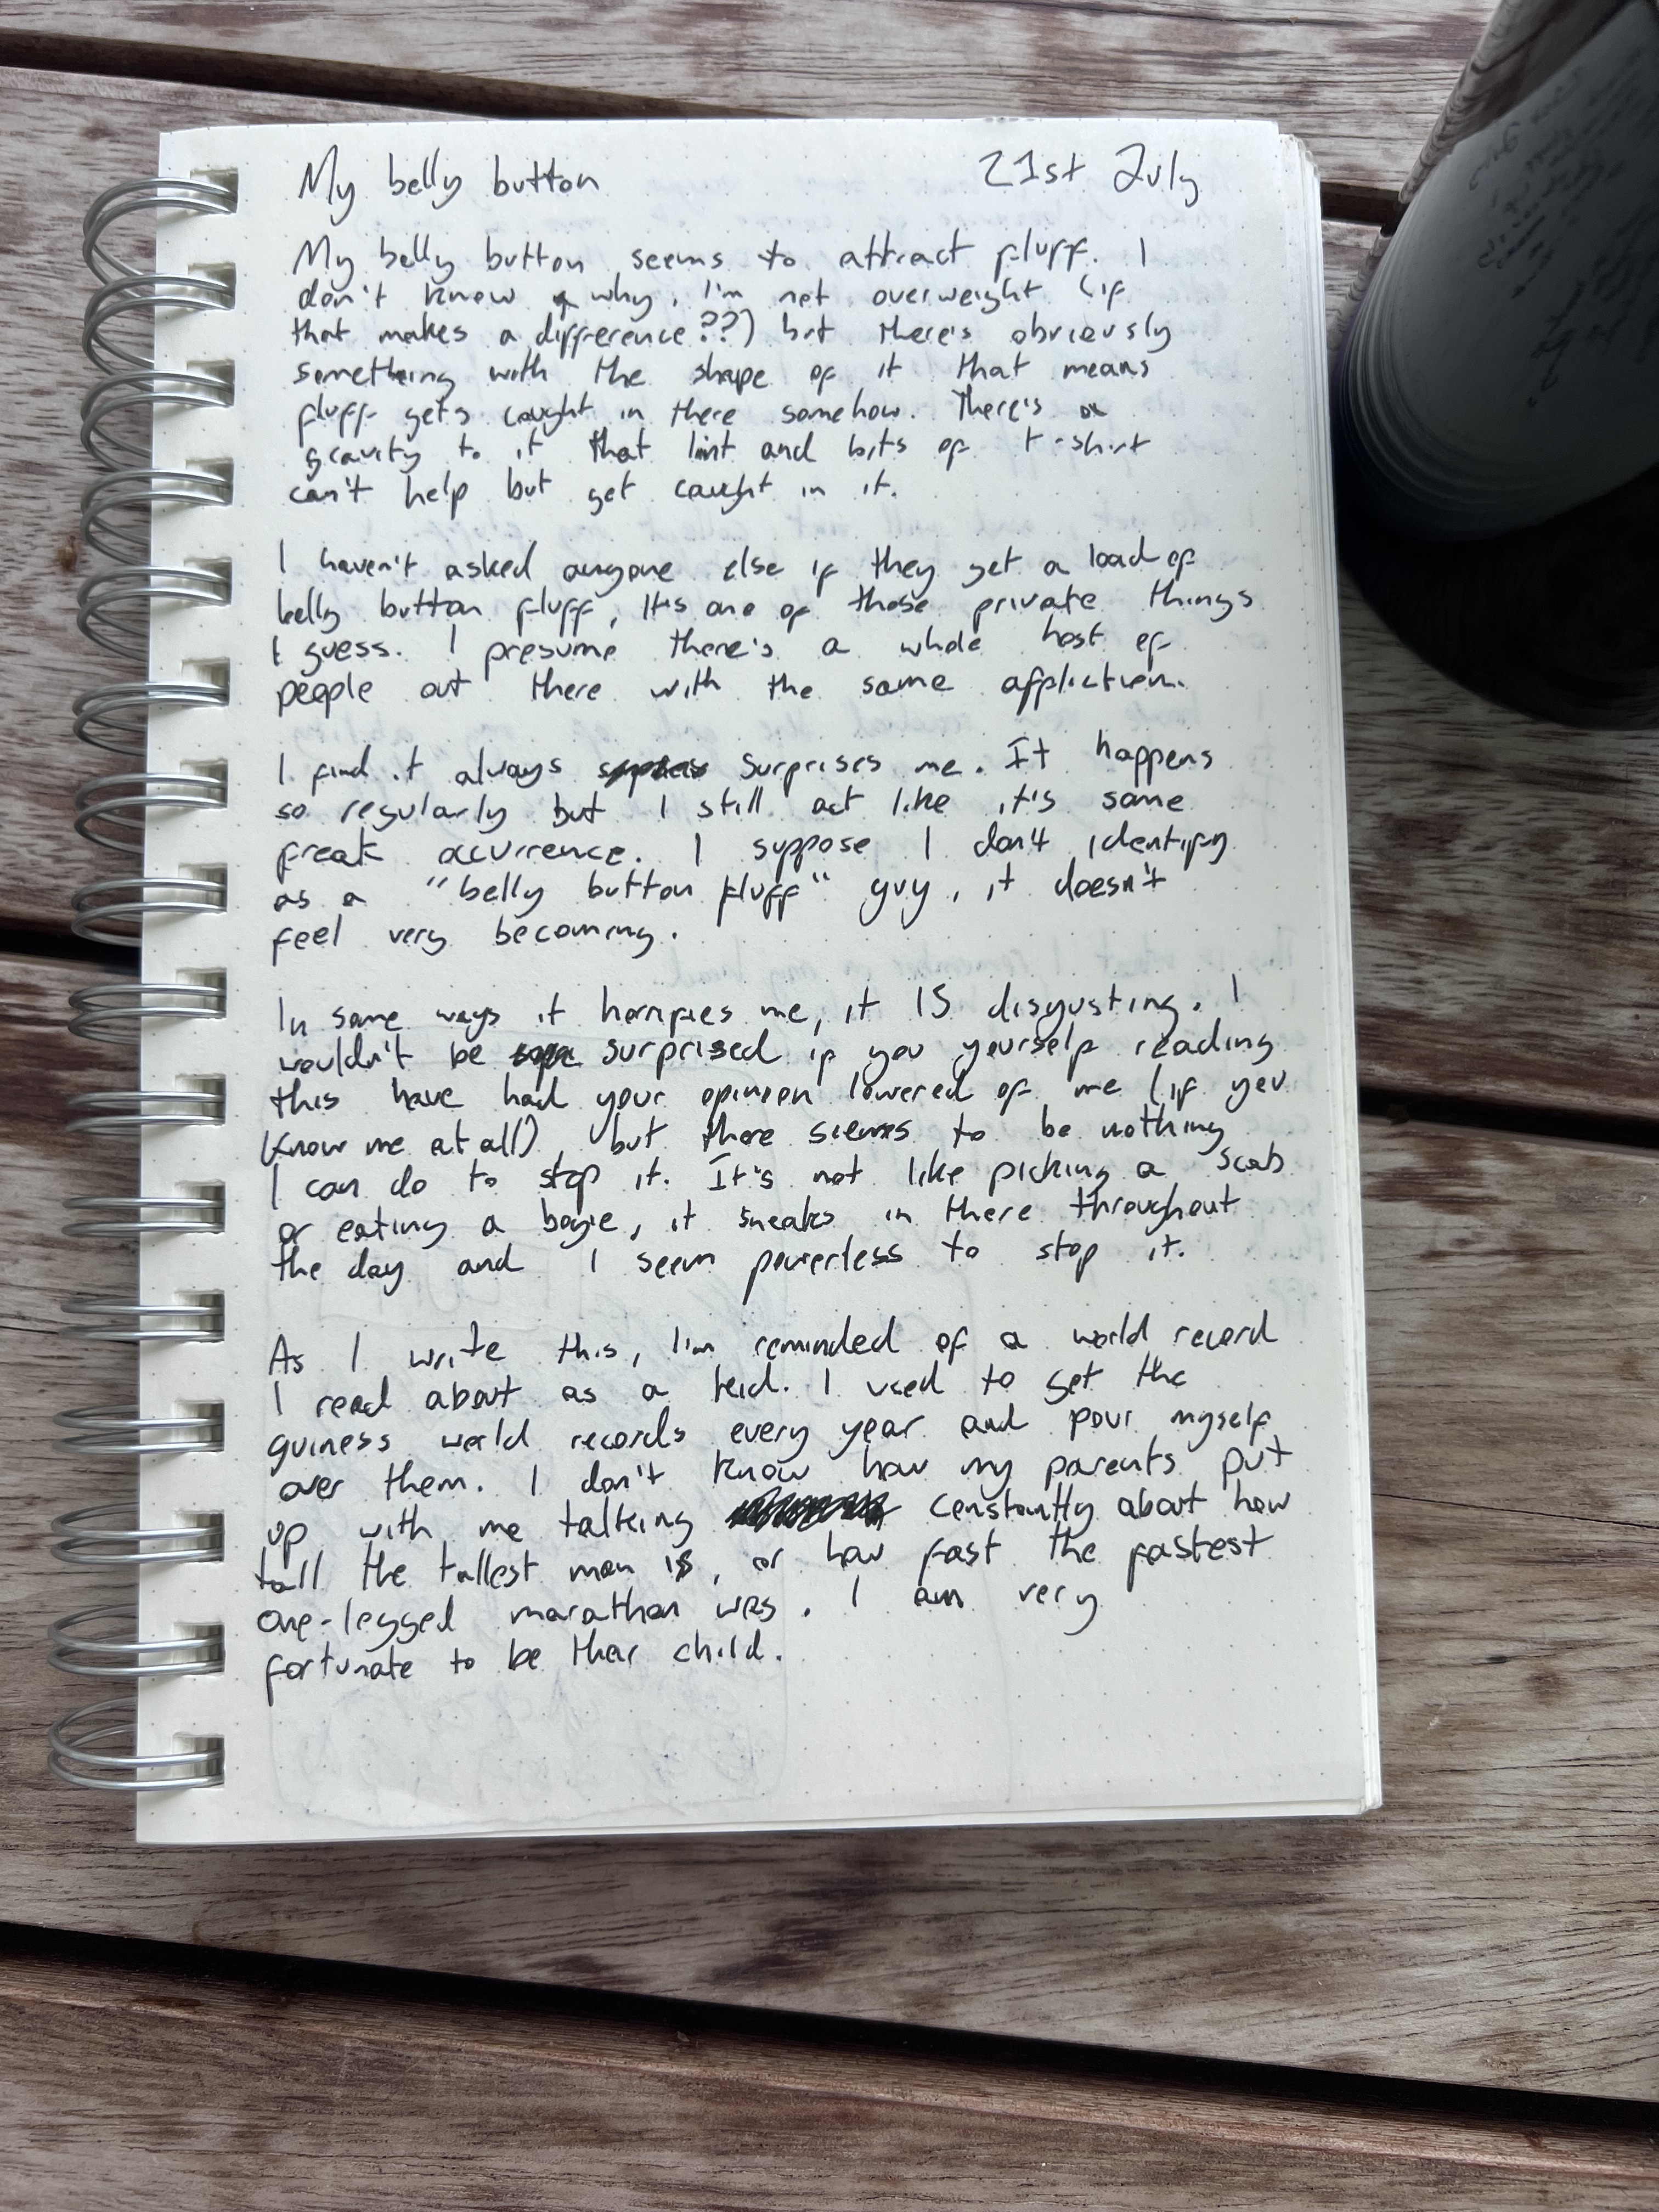 My belly button 21st July
My belly button seems to attract fluff. I
don't know why, I'm not overweight (if
that makes a difference??) but there's obviously
something with the shape of it that means
fluff gets caught in there somehow. There's a
gravity to it that lint and bits of t-shirt
can't help but get caught in it.
I haven't asked anyone else if they get a load of
belly button fluff, it's one of those private things
I guess. I presume there's a whole host of
people out there with the same affliction.
I find it always surprises me. It happens
so regularly but I still act like it's some
freak occurrence. I suppose I don't identify
as a "belly button fluff" guy, it doesn't
feel very becoming.
In some ways it horrifies me, it IS disgusting. I
wouldn't be surprised if you yourself reading
this have had your opinion lowered of me (if you
know me at all) but there seems to be nothing
I can do to stop it. It's not like picking a scab
or eating a bogie, it sneaks in there throughout
the day and I seem powerless to stop it.
As I write this, I'm reminded of a world record
I read about as a kid. I used to get the
guiness world records every year and pour myself
over them. I don't know how my parents put
up with me talking constantly about how
tall the tallest man is, or how fast the fastest
one-legged marathon was. I am very
fortunate to be their child.